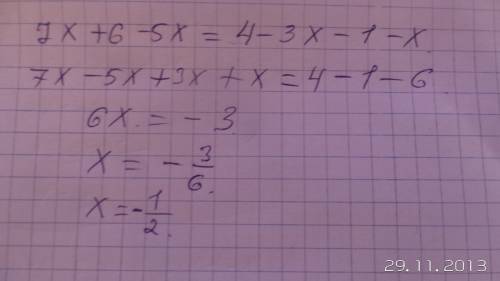 7x + 6 - 5x = 4 - 3x - 1 - x.
7x - 5x + 3x + x = 4 - 1 - 6.
6x. = - 3
x = - 3/6.
x = - 1/2.
29.11.2013